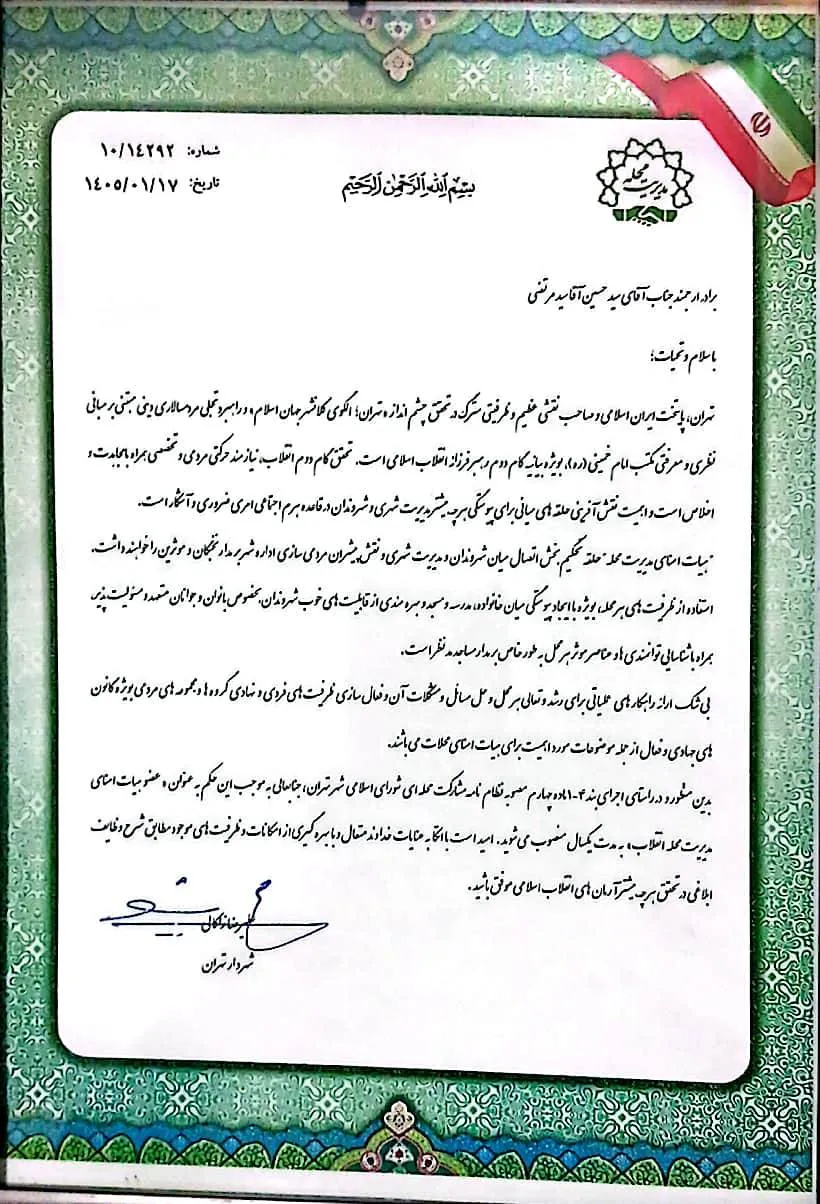 شماره: ۱۰/۱٤۲۹۲
تاریخ: ۱٤۰۵/۰۱/۱۷
بسم الله الرحمن الرحیم
مدیریت محله
برادر ارجمند جناب آقای سید حسین آقاسید مرتضی
با سلام و تحیات؛
تهران، پایتخت ایران اسلامی و صاحب نقشی عظیم و ظرفیتی سترگ در تحقق چشم انداز «تهران؛ الگوی کلانشهر جهان اسلام» و راهبرد تجلی مردمسالاری دینی مبتنی بر مبانی
نظری و معرفتی مکتب امام خمینی (ره)، بویژه بیانیه گام دوم رهبر فرزانه انقلاب اسلامی است. تحقق گام دوم انقلاب، نیازمند حرکتی مردمی و تخصصی همراه با مجاهدت و
اخلاص است و اهمیت نقش آفرینی حلقه های میانی برای پیوستگی هر چه بیشتر مدیریت شهری و شهروندان در قاعده هرم اجتماعی امری ضروری و آشکار است.
"هیات امنای مدیریت محله" حلقه تحکیم بخش اتصال میان شهروندان و مدیریت شهری و نقش پیشران مردمی سازی اداره شهر بر مدار نخبگان و موثرین را خواهند داشت.
استفاده از ظرفیت های هر محله، بویژه با ایجاد پیوستگی میان خانواده، مدرسه و مسجد و بهره مندی از قابلیت های خوب شهروندان بخصوص بانوان و جوانان متعهد و مسئولیت پذیر
همراه با شناسایی توانمندی ها و عناصر موثر هر محل به طور خاص بر مدار مساجد مد نظر است.
بی شک ارائه راهکار های عملیاتی برای رشد و تعالی هر محل و حل مسائل و مشکلات آن و فعال سازی ظرفیت های فردی و نهادی گروه ها و مجموعه های مردمی بویژه کانون
های جهادی و فعال از جمله موضوعات مورد اهمیت برای هیات امنای محلات می باشند.
بدین منظور و در راستای اجرای بند ۴-۱ ماده چهارم مصوبه نظام نامه مشارکت محله ای شورای اسلامی شهر تهران، جنابعالی به موجب این حکم به عنوان «عضو هیات امنای
مدیریت محله انقلاب» به مدت یکسال منصوب می شوید. امید است با اتکا به عنایات خداوند متعال و با بهره گیری از امکانات و ظرفیت های موجود مطابق شرح وظایف
ابلاغی در تحقق هر چه بیشتر آرمان های انقلاب اسلامی موفق باشید.
علیرضا زاکانی
شهردار تهران